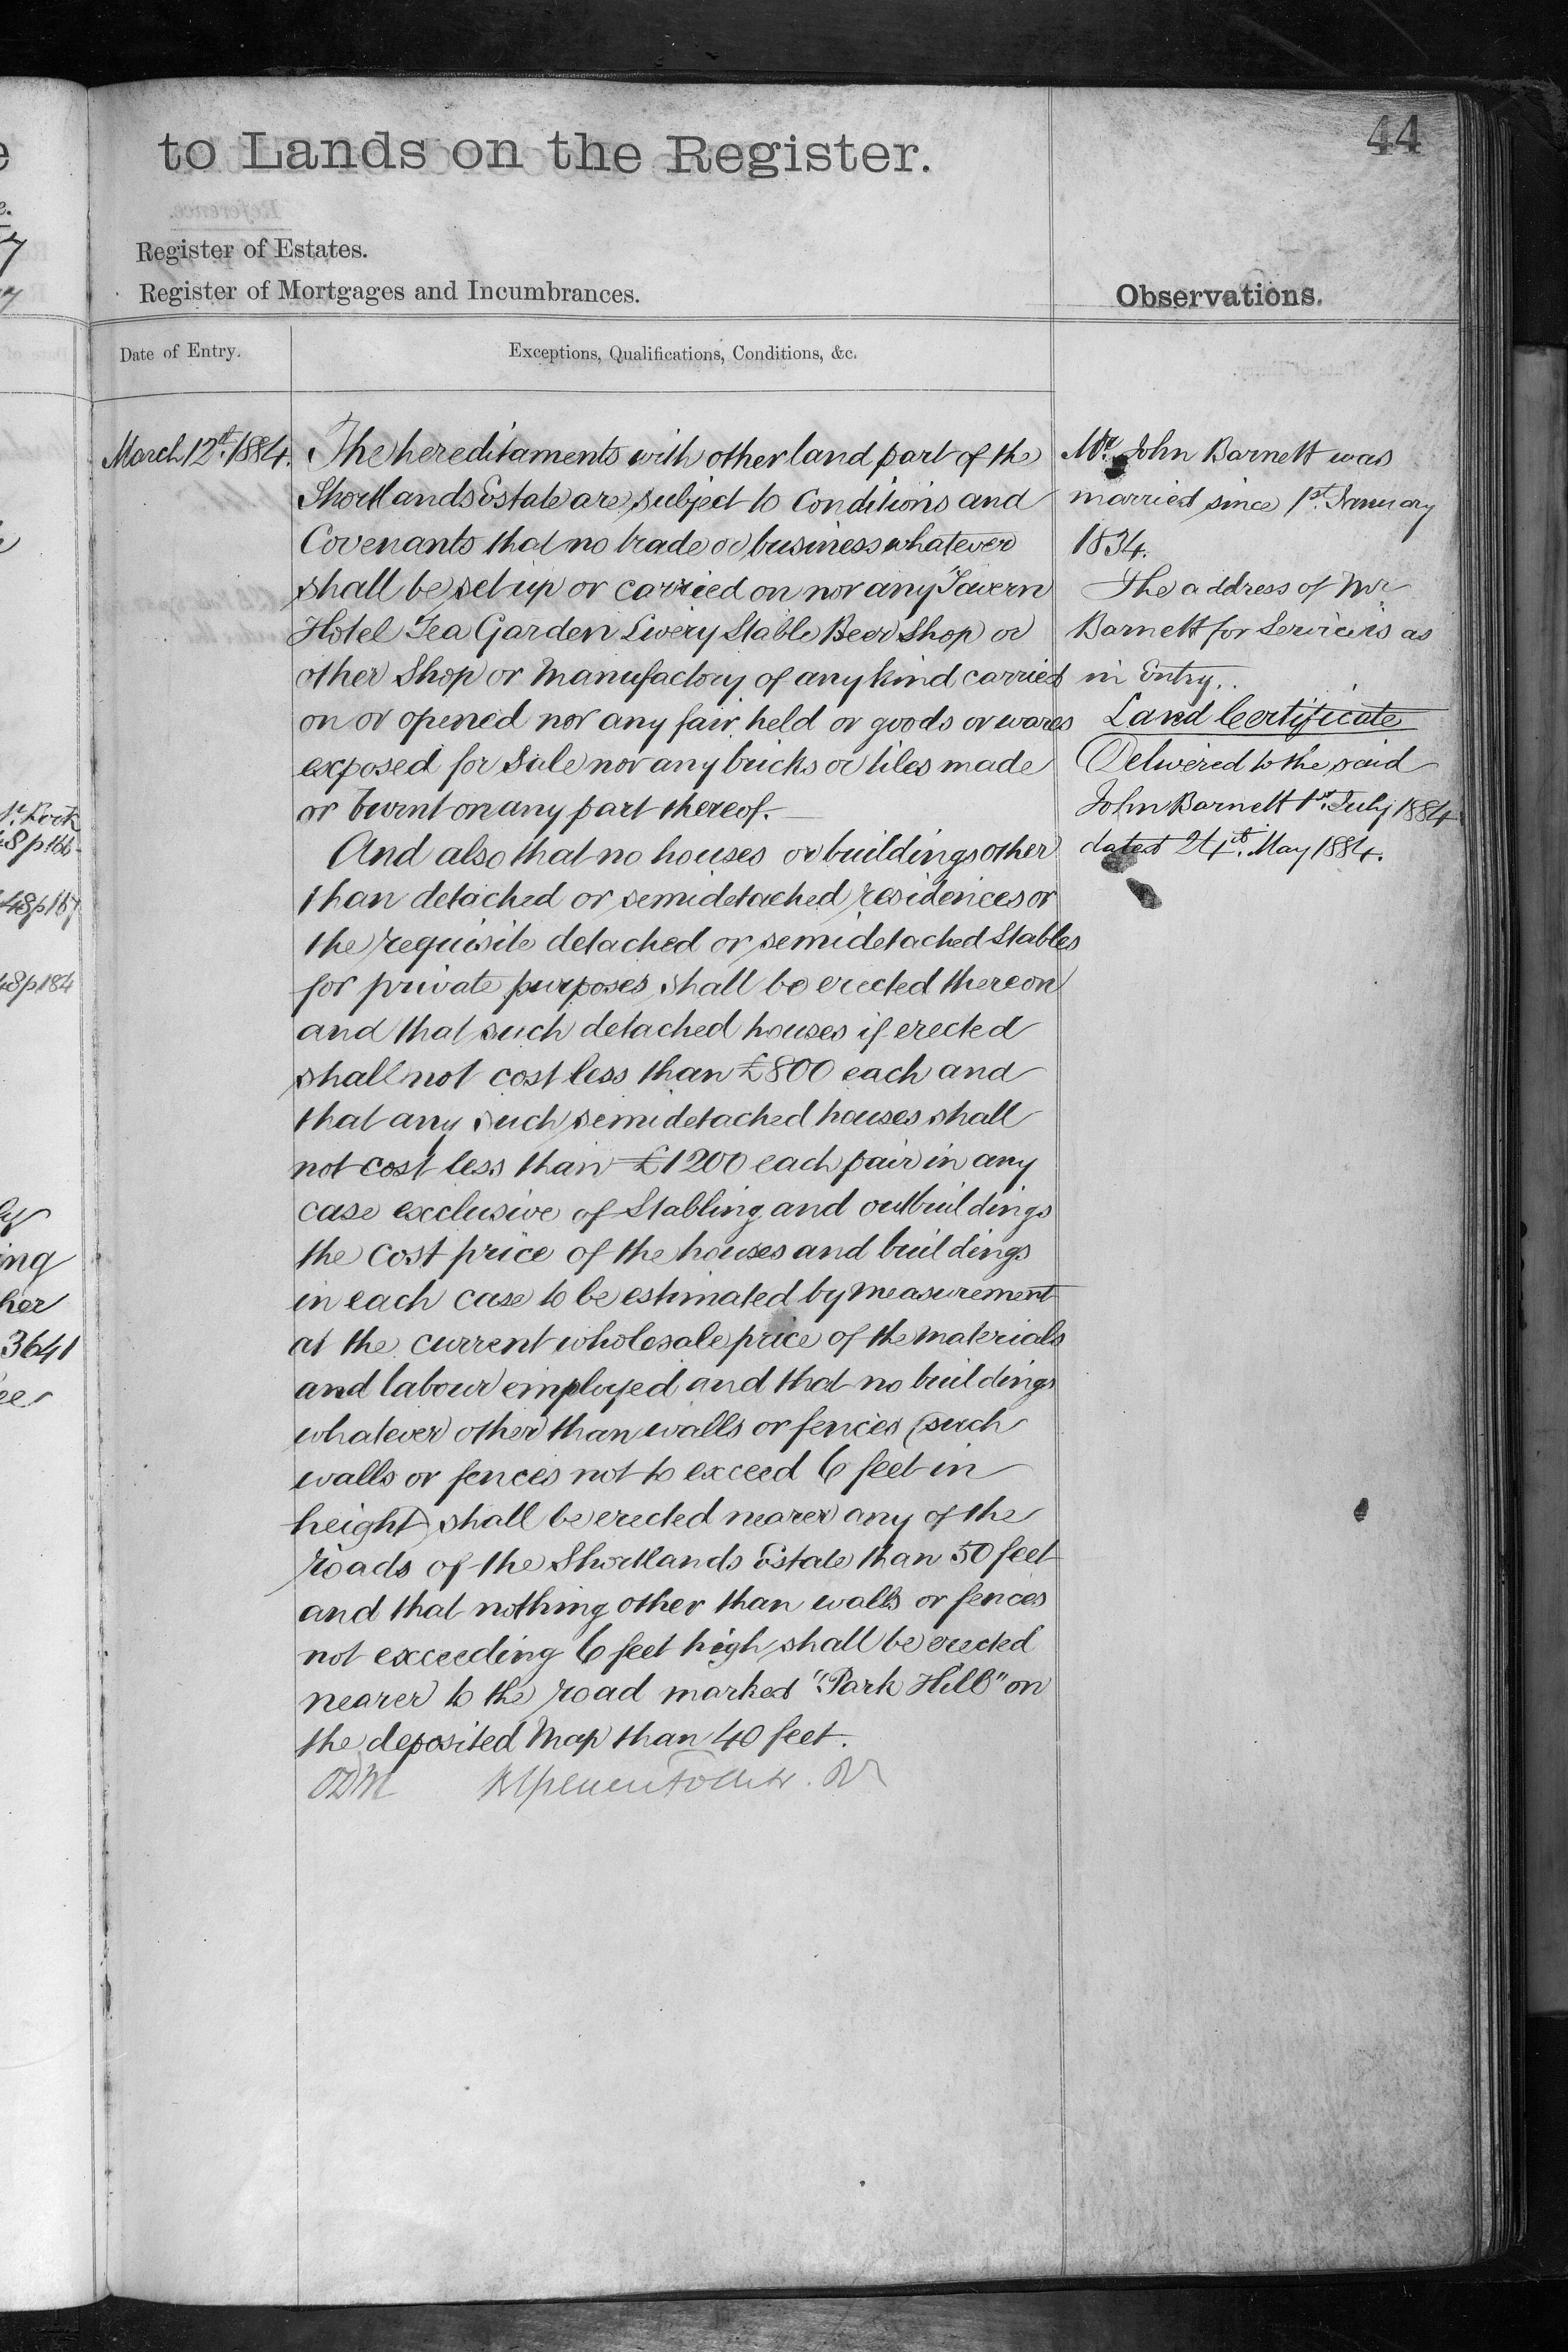 44
to Lands on the Register.
Register of Estates.
Register of Mortgages and Incumbrances.
Observations.
Date of Entry.
Exceptions, Qualifications, Conditions, &c.
March 12th. 1884.
The hereditaments with other land part of the
Shortlands Estate are subject to Conditions and
Covenants that no trade or business whatever
shall be set up or carried on nor any Tavern
Hotel Tea Garden Livery Stable Beer Shop or
other Shop or Manufactory of any kind carried
on or opened nor any fair held or goods or wares
exposed for Sale nor any bricks or tiles made
or burnt on any part thereof.
And also that no houses or buildings other
than detached or semidetached residences or
the requisite detached or semidetached Stables
for private purposes shall be erected thereon
and that such detached houses if erected
shall not cost less than £800 each and
that any such semidetached houses shall
not cost less than £1200 each pair in any
case exclusive of Stabling and outbuildings
the cost price of the houses and buildings
in each case to be estimated by measurement
at the current wholesale price of the materials
and labour employed and that no buildings
whatever other than walls or fences (such
walls or fences not to exceed 6 feet in
height) shall be erected nearer any of the
roads of the Shortlands Estate than 50 feet
and that nothing other than walls or fences
not exceeding 6 feet high shall be erected
nearer to the road marked "Park Hill" on
the deposited Map than 40 feet.
Mr. John Barnett was
married since 1st. January
1834.
The address of Mr
Barnett for Service is as
in Entry.
Land Certificate
Delivered to the said
John Barnett 1st. July 1884
dated 24th. May 1884.
48 p 166
48 p 167
48 p 184
ing
her
3641